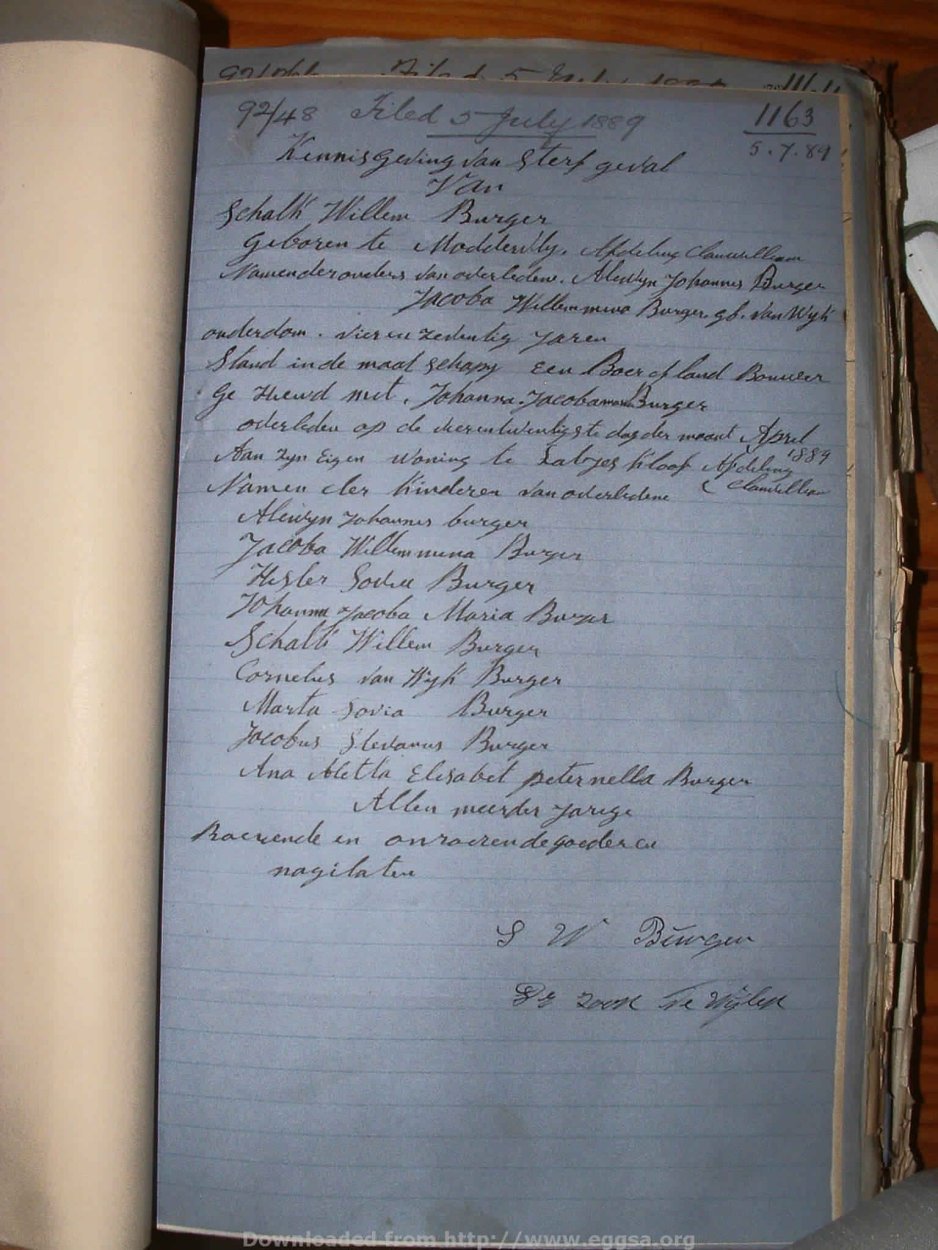 92/48 Filed 5 July 1889
1163
5.7.89
Kennisgeving van Sterf geval
Van
Schalk Willem Burger
Geboren te Moddervly, Afdeling Clanwilliam
Namen der ouders van overledene. Alewyn Johannes Burger
Jacoba Willemmina Burger gb. van Wyk
ouderdom. vier en zeventig Jaren
Stand in de maatschapy een Boer of land Bouwer
Ge Huwd met, Johanna Jacoba Burger
overleden op de vierentwintigste dag der maant April
1889
Aan zyn Eigen woning te Kloof Afdeling
Clanwilliam
Namen der Kinderen van overledene
Alewyn Johannes burger
Jacoba Willemmina Burger
Hester Sovia Burger
Johanna Jacoba Maria Burger
Schalk Willem Burger
Cornelus van Wyk Burger
Marta Sovia Burger
Jacobus Stevanus Burger
Ana Aletta Elisabet peternella Burger
Allen meerder Jarige
Roerende en onroerende goederen
nagilaten
S W Burger
zoon
Downloaded from http://www.eggsa.org